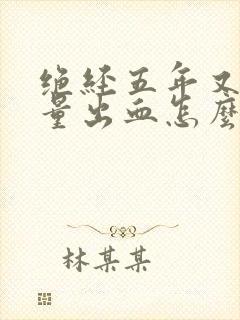 绝经五年又
量出血怎麽
林某某